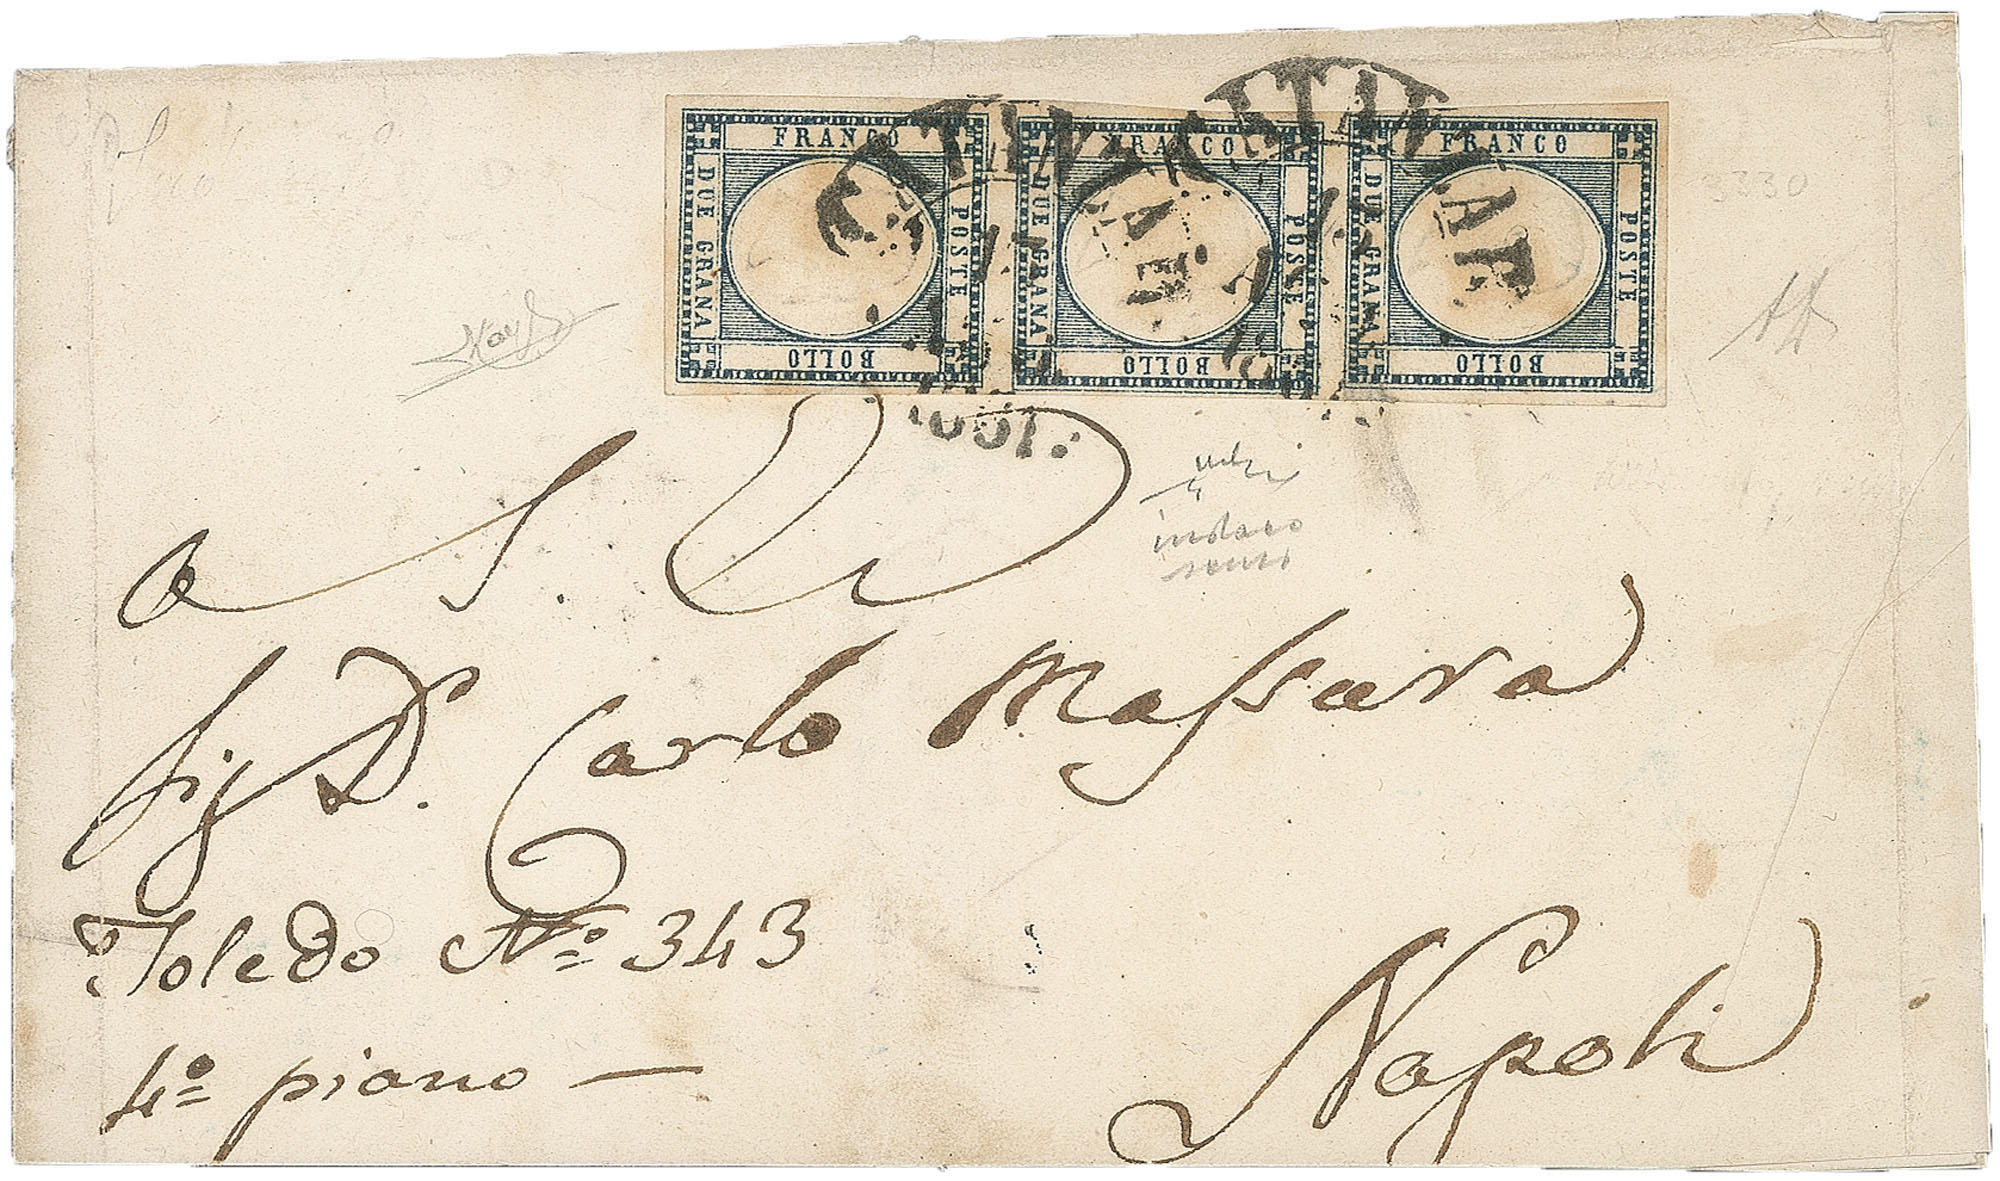 FRANCO POSTE BOLLO DUE GRANA
FRANCO POSTE BOLLO DUE GRANA
FRANCO POSTE BOLLO DUE GRANA
1861
a S. E.
Sig D. Carlo Massara
Toledo Nº 343
4º piano —
Napoli
3330